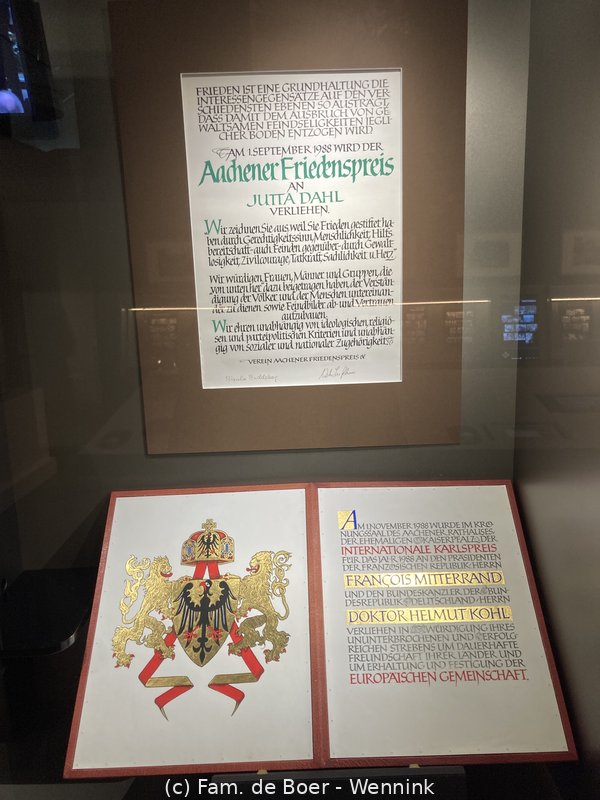 FRIEDEN IST EINE GRUNDHALTUNG DIE
INTERESSENGEGENSÄTZE AUF DEN VER-
SCHIEDENSTEN EBENEN SO AUSTRÄGT,
DASS DAMIT DEM AUSBRUCH VON GE-
WALTSAMEN FEINDSELIGKEITEN JEGLI-
CHER BODEN ENTZOGEN WIRD.
AM 1. SEPTEMBER 1988 WIRD DER
Aachener Friedenspreis
AN
JUTTA DAHL
VERLIEHEN.
Wir zeichnen Sie aus, weil Sie Frieden gestiftet ha-
ben durch Gerechtigkeitssinn, Menschlichkeit, Hilfs-
bereitschaft-auch Feinden gegenüber-durch Gewalt-
losigkeit, Zivilcourage, Tatkraft, Sachlichkeit u. Herz.
Wir würdigen, Frauen, Männer und Gruppen, die
von unten her dazu beigetragen haben, der Verstän-
digung der Völker und der Menschen untereinan-
der zu dienen sowie Feindbilder ab- und Vertrauen
aufzubauen.
Wir ehren unabhängig von ideologischen, religiö-
sen und parteipolitischen Kriterien und unabhän-
gig von sozialer und nationaler Zugehörigkeit.
VEREIN AACHENER FRIEDENSPREIS EV
AM 1 NOVEMBER 1988 WURDE IM KRÖ-
NUNGSSAAL DES AACHENER RATHAUSES,
DER EHEMALIGEN KAISERPFALZ, DER
INTERNATIONALE KARLSPREIS
FÜR DAS JAHR 1988 AN DEN PRÄSIDENTEN
DER FRANZÖSISCHEN REPUBLIK HERRN
FRANÇOIS MITTERRAND
UND DEN BUNDESKANZLER DER BUN-
DESREPUBLIK DEUTSCHLAND HERRN
DOKTOR HELMUT KOHL
VERLIEHEN IN WÜRDIGUNG IHRES
UNUNTERBROCHENEN UND ERFOLG-
REICHEN STREBENS UM DAUERHAFTE
FREUNDSCHAFT IHRER LÄNDER UND
UM ERHALTUNG UND FESTIGUNG DER
EUROPÄISCHEN GEMEINSCHAFT.
(c) Fam. de Boer - Wennink